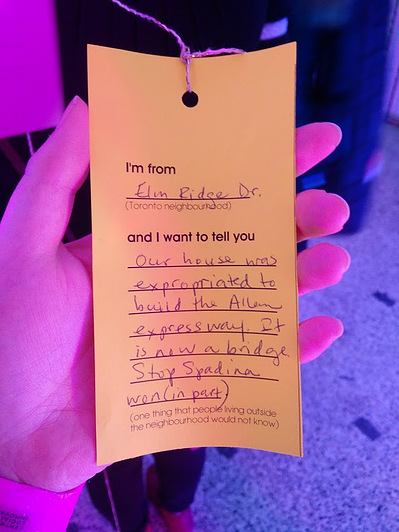 I'm from
Elm Ridge Dr.
(Toronto neighbourhood)
and I want to tell you
Our house was
expropriated to
build the Allen
expressway. It
is now a bridge.
Stop Spadina
won (in part)
(one thing that people living outside
the neighbourhood would not know)